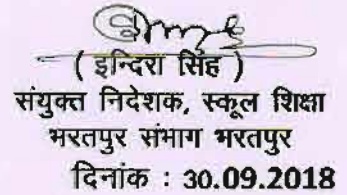 ( इन्दिरा सिंह )
संयुक्त निदेशक, स्कूल शिक्षा
भरतपुर संभाग भरतपुर
दिनांक : 30.09.2018